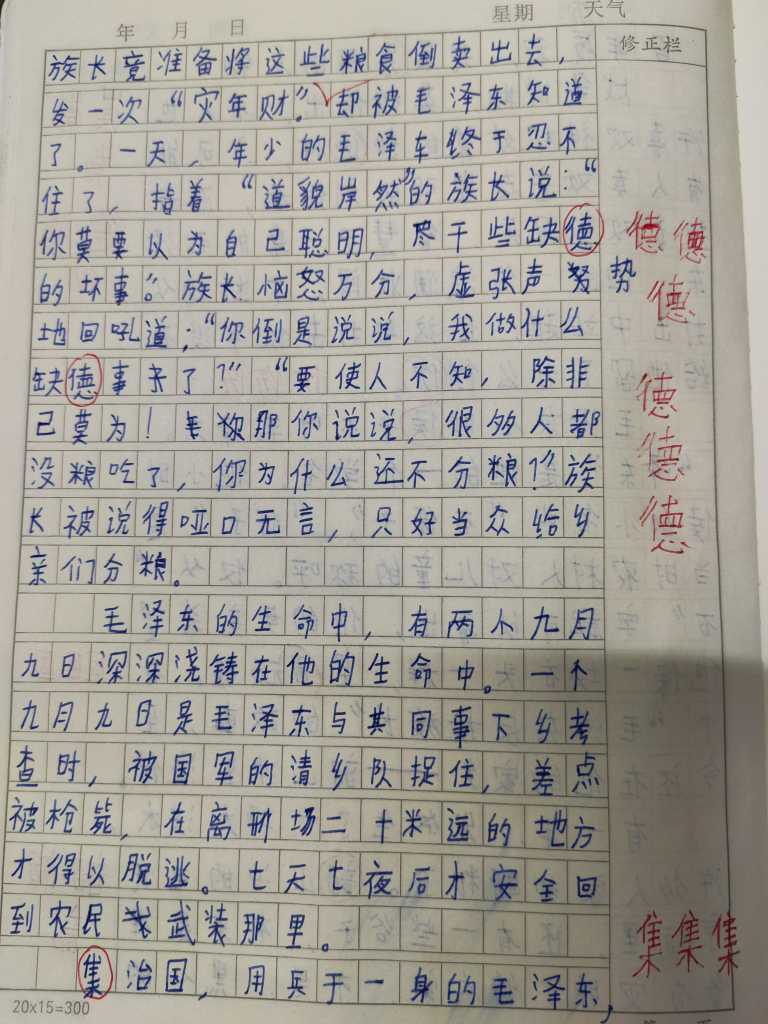 年 月 日 星期 天气
修正栏
族长竟准备将这些粮食倒卖出去，
发一次“灾年财”。却被毛泽东知道
了。一天，年少的毛泽东终于忍不
住了，指着“道貌岸然”的族长说：“
你莫要以为自己聪明，尽干些缺德 德德
的坏事”。族长恼怒万分，虚张声势 德
地回吼道：“你倒是说说，我做什么
缺德事来了？”“要使人不知，除非 德
己莫为！那你说说，很多人都 德
没粮吃了，你为什么还不分粮？”族
长被说得哑口无言，只好当众给乡 德
亲们分粮。
毛泽东的生命中，有两个九月
九日深深浇铸在他的生命中。一个
九月九日是毛泽东与其同事下乡考
查时，被国军的清乡队捉住，差点
被枪毙，在离刑场二十米远的地方
才得以脱逃。七天七夜后才安全回
到农民武装那里。 集集集
集治国，用兵于一身的毛泽东，
20x15=300